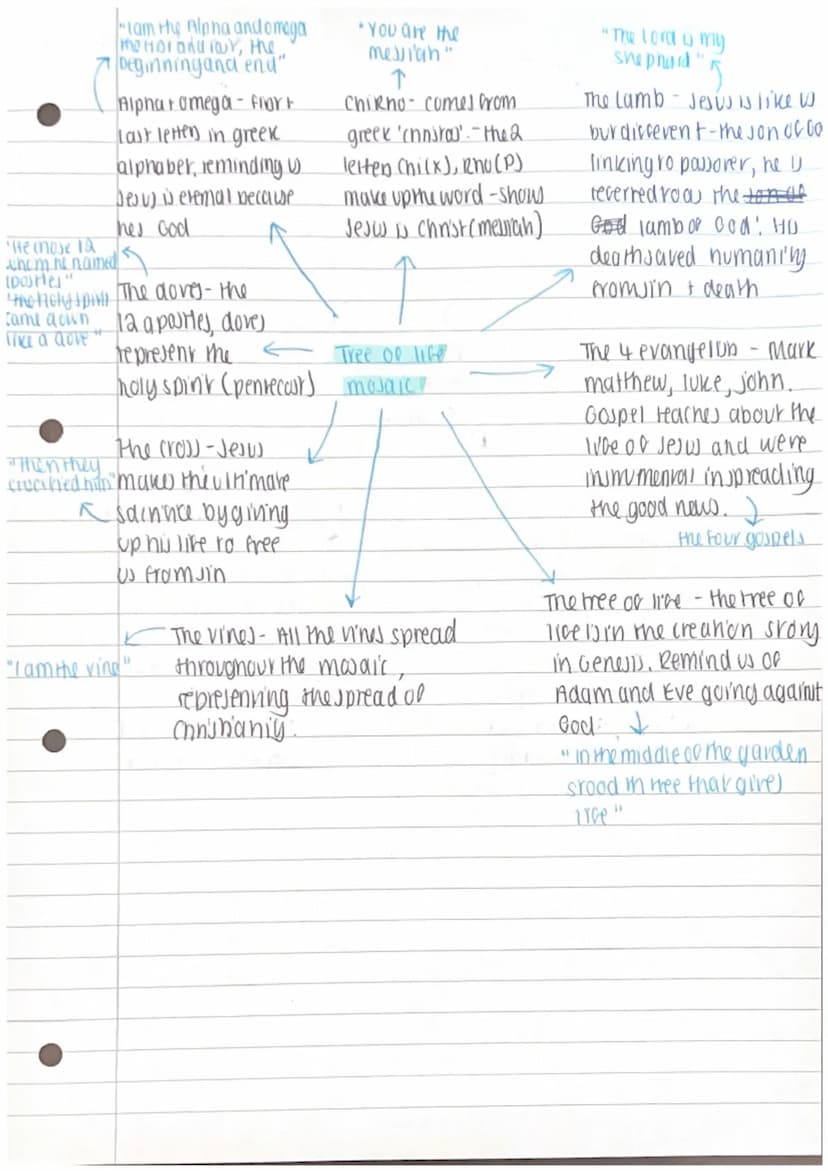 "I am the Alpha and omega
the first and last, the
beginning and end"
Alpha + omega - first +
last letters in greek
alphabet, reminding us
Jesus is eternal because
hes God
"You are the
messiah"
Chi Rho - comes from
greek 'christos'. - the 2
letters Chi (X), Rho (P)
make up the word - show
Jesus is Christ (messiah)
"The lord is my
shepherd"
The lamb - Jesus is like us
but different - the son of Go
linking to passover, he is
referred to as the son of
God lamb of God'. His
death saved humanity
from sin + death
"He chose 12
them he named
apostles"
"the holy spirit
came down
like a dove"
The doves - the
12 apostles, doves
represent the
holy spirit (pentecost)
Tree of life
mosaic
The 4 evangelists - Mark
matthew, luke, john.
Gospel teaches about the
life of Jesus and were
instrumental in spreading
the good news.
the four gospels
"Then they
crucified him"
The cross - Jesus
makes the ultimate
sacrifice by giving
up his life to free
us from sin
"I am the vine"
The vines - All the vines spread
throughout the mosaic,
representing the spread of
Christianity.
The tree of life - the tree of
life is in the creation story
in Genesis. Remind us of
Adam and Eve going against
God.
"In the middle of the garden
stood th tree that gives
life"